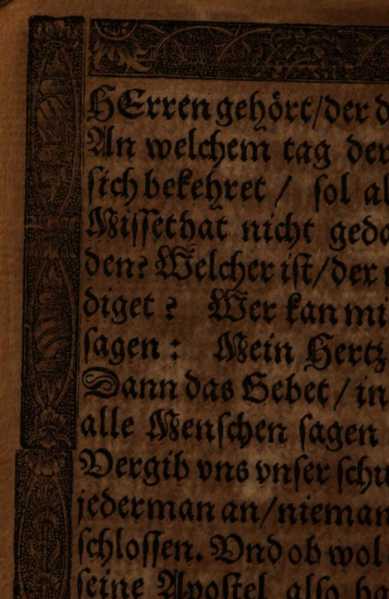 HErren gehört/der d
An welchem tag der
sich bekehret / sol al
Missethat nicht geda
den? Welcher ist/der
diget? Wer kan mi
sagen: Mein Hertz
Dann das Gebet/in
alle Menschen sagen
Vergib vns vnser schu
jederman an/nieman
schlossen. Vnd ob wol
seine Apostel also